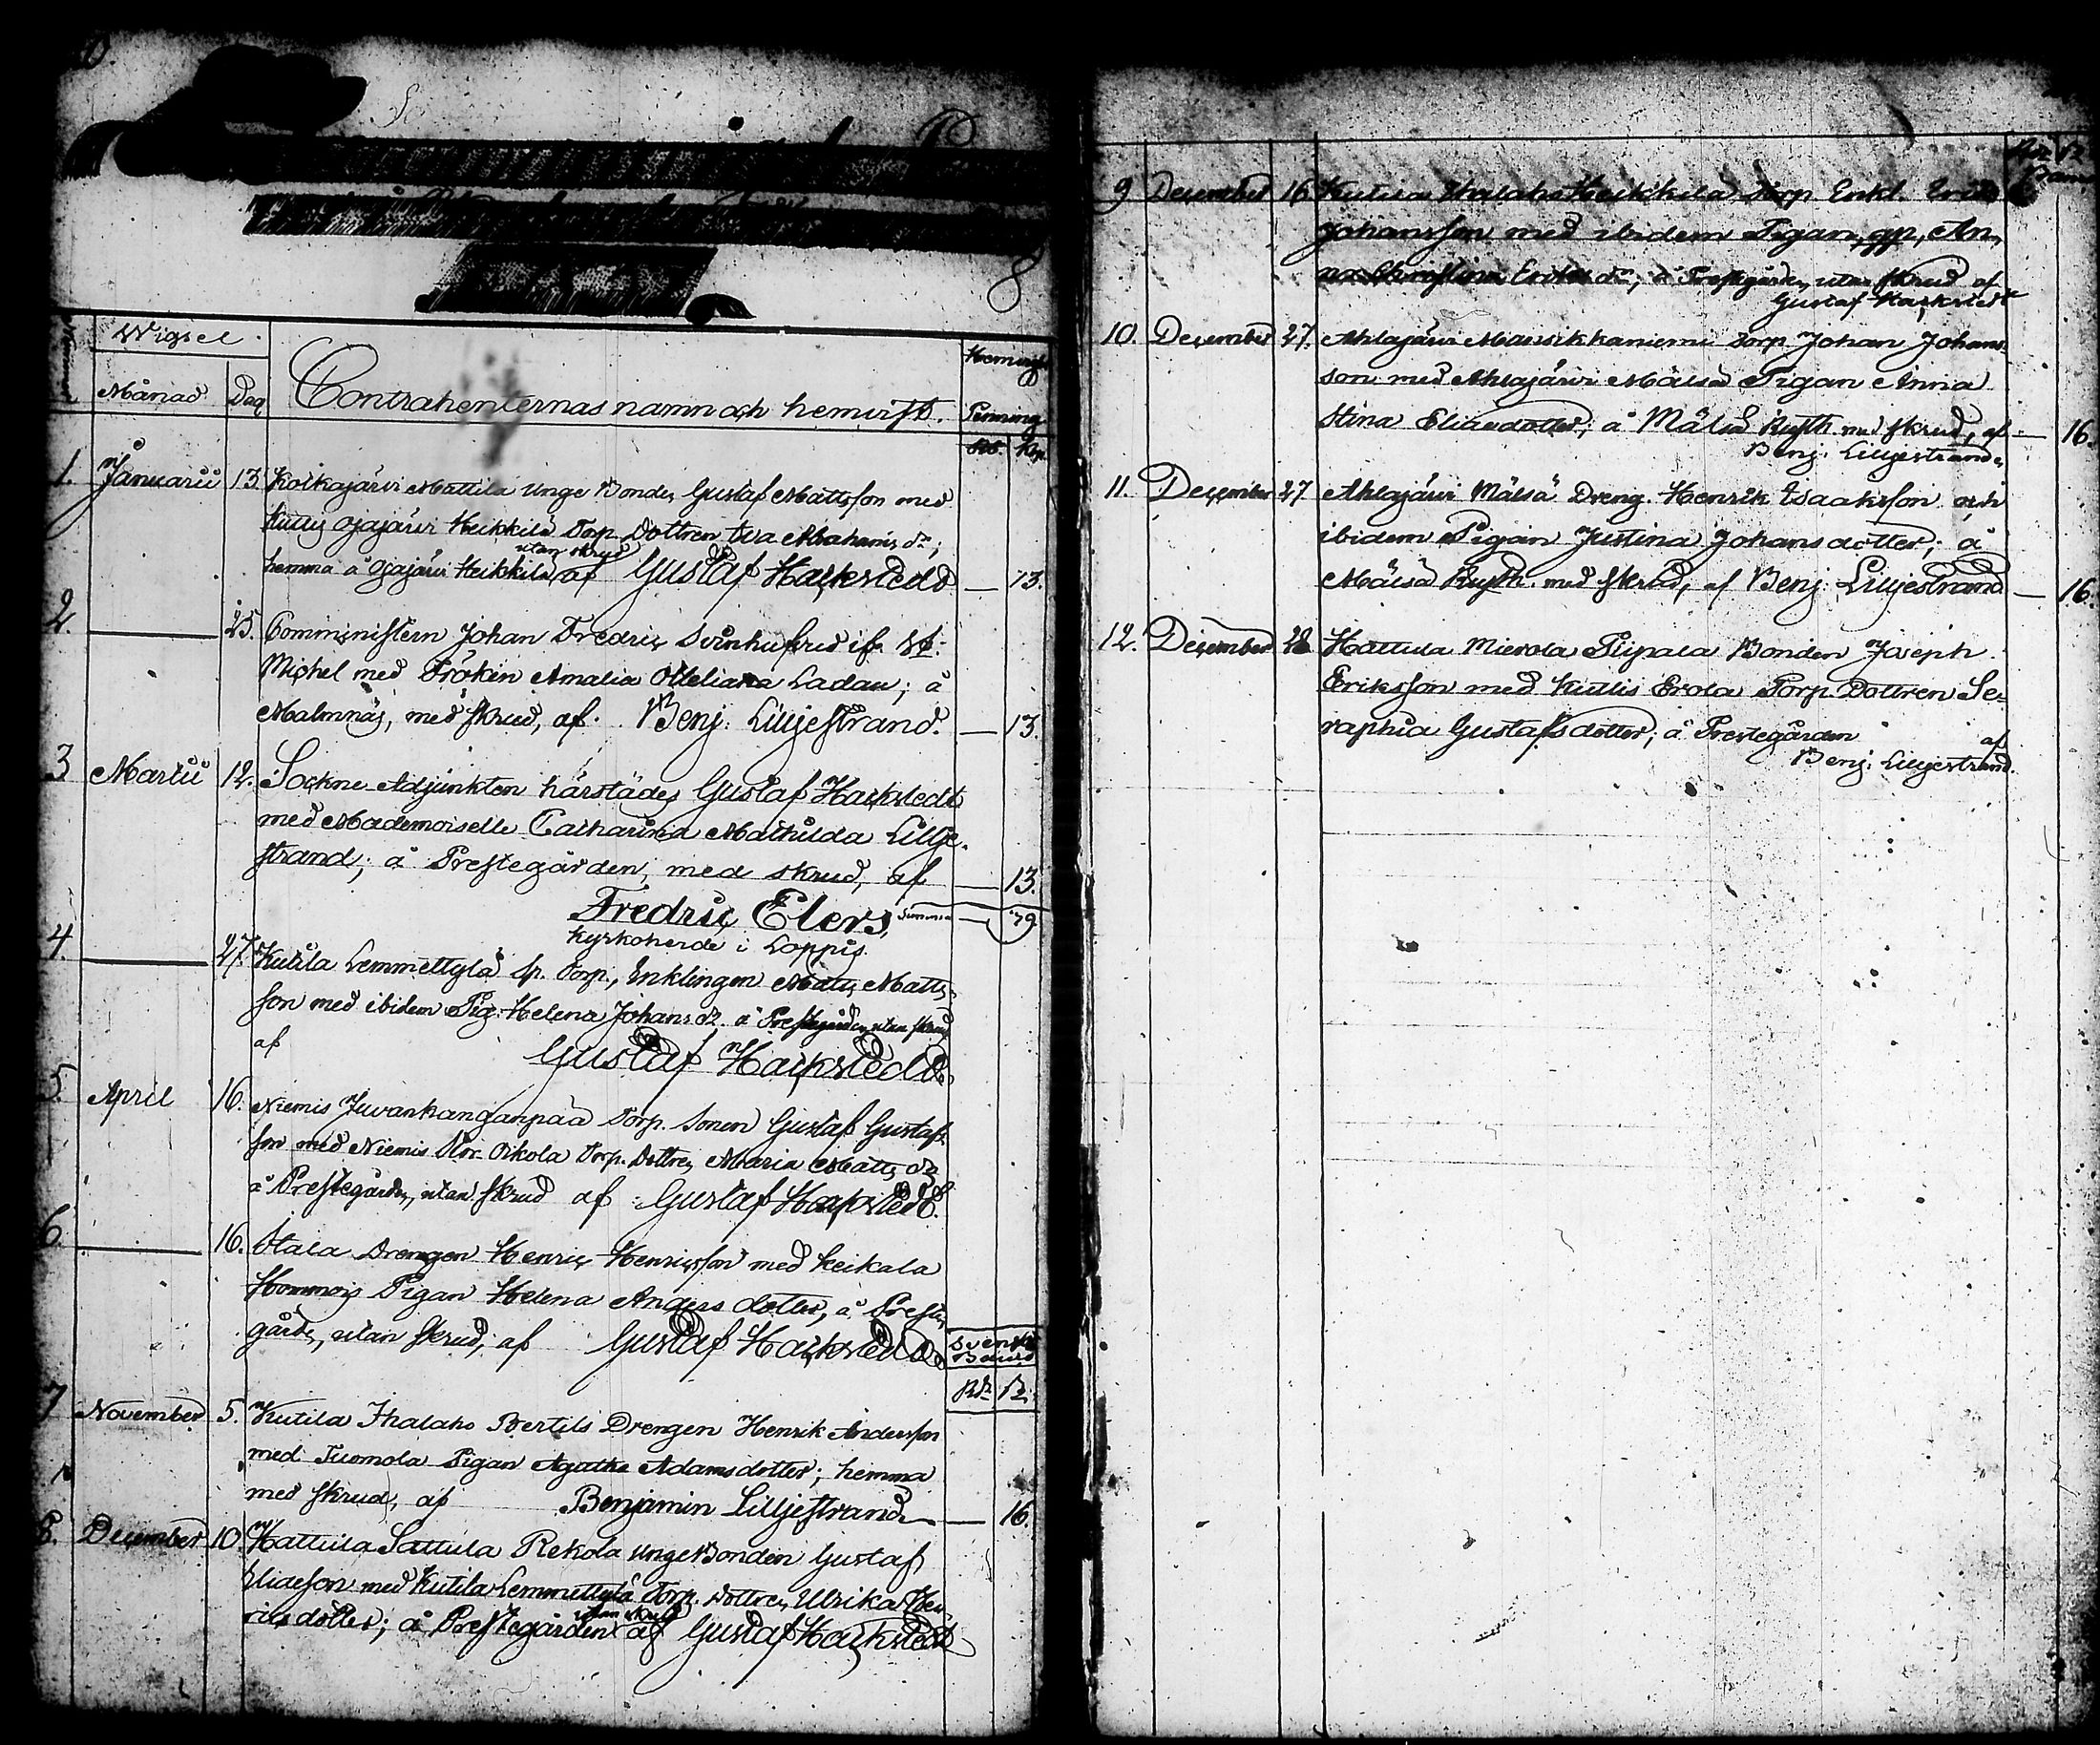 Wigsel.
Månad
Dag
Contrahenternas namn och hemvist.
Penning
Kop.
1. Januarii 13 Koikajärvi Mattila unge Bonden Gustaf Mattsson med
Ojajärvi Heikkilä Torp. Dottren Eva Abrahams dr;
utan skrud
hemma å Ojajärvi Heikkilä af Gustaf Hackstedt — 13.
2. — 25. Comministern Johan Fredric Svinhufvud if. St.
Michel med Fröken Amalia Otteliana Ladau; å
Malmnäs, med skrud, af. Benj. Lilljestrand. — 13.
3 Martii 12. Sockne Adjunkten härstädes Gustaf Hackstedt
med Mademoiselle Catharina Mathilda Lillje-
strand; å Prestegården, med skrud, af — 13.
Fredric Elers, Summa — 79.
Kyrkoherde i Loppis.
4. — 27. Kutila Lemmettylä sp. Torp., Enklingen Matts Matts-
son med ibidem Pig. Helena Johans dr. å Prestegården utan skrud
af Gustaf Hackstedt
5. April 16. Niemis Juvankanganpää Torp. Sonen Gustaf Gustafs-
son med Niemis Stor Oikola Torp. Dottren Maria Matts dr
å Prestegården, utan skrud af Gustaf Hackstedt.
6. — 16. Itala Drengen Henric Henricsson med Keikala
Hommois Pigan Helena Anders dotter, å Preste-
gården, utan skrud; af Gustaf Hackstedt
Svenskt
Banco
Rdr
7 November 5. Kutila Ihalaho Bertils Drengen Henrik Andersson
med Tuomola Pigan Agatha Adamsdotter; hemma
med skrud, af Benjamin Lilljestrand — 16.
8. December 10. Hattula Sattula Rekola unge Bonden Gustaf
Eliasson med Kutila Lemmettylä Torp. Dottren Ulrika Hen-
utan skrud
ricsdotter; å Prestegården af Gustaf Hackstedt
9 December 16 Kutila Ihalaho Heikkilä Torp. Enkl. Eric
Johansson med ibidem Pigan, gp, An-
na Christina Eriks dr, å Prestegården utan skrud af
Gustaf Hackstedt
10. December 27. Ahlajärvi Mansikkaniemi Torp. Johan Johans-
son med Ahlajärvi Mälsä Pigan Anna
Stina Eliaedotter; å Mälsä Rusth. med skrud, af — 16.
Benj. Lilljestrand.
11. December 27 Ahlajärvi Mälsä Dreng. Henrik Isaaksson och
ibidem Pigan Justina Johansdotter; å
Mälsä Rusth. med skrud, af Benj. Lilljestrand — 16.
12. December 28 Hattula Mierola Piipala Bonden Joseph
Eriksson med Kutlis Erola Torp. Dottren Se-
raphia Gustafsdotter; å Prestegården
af
Benj. Lilljestrand.